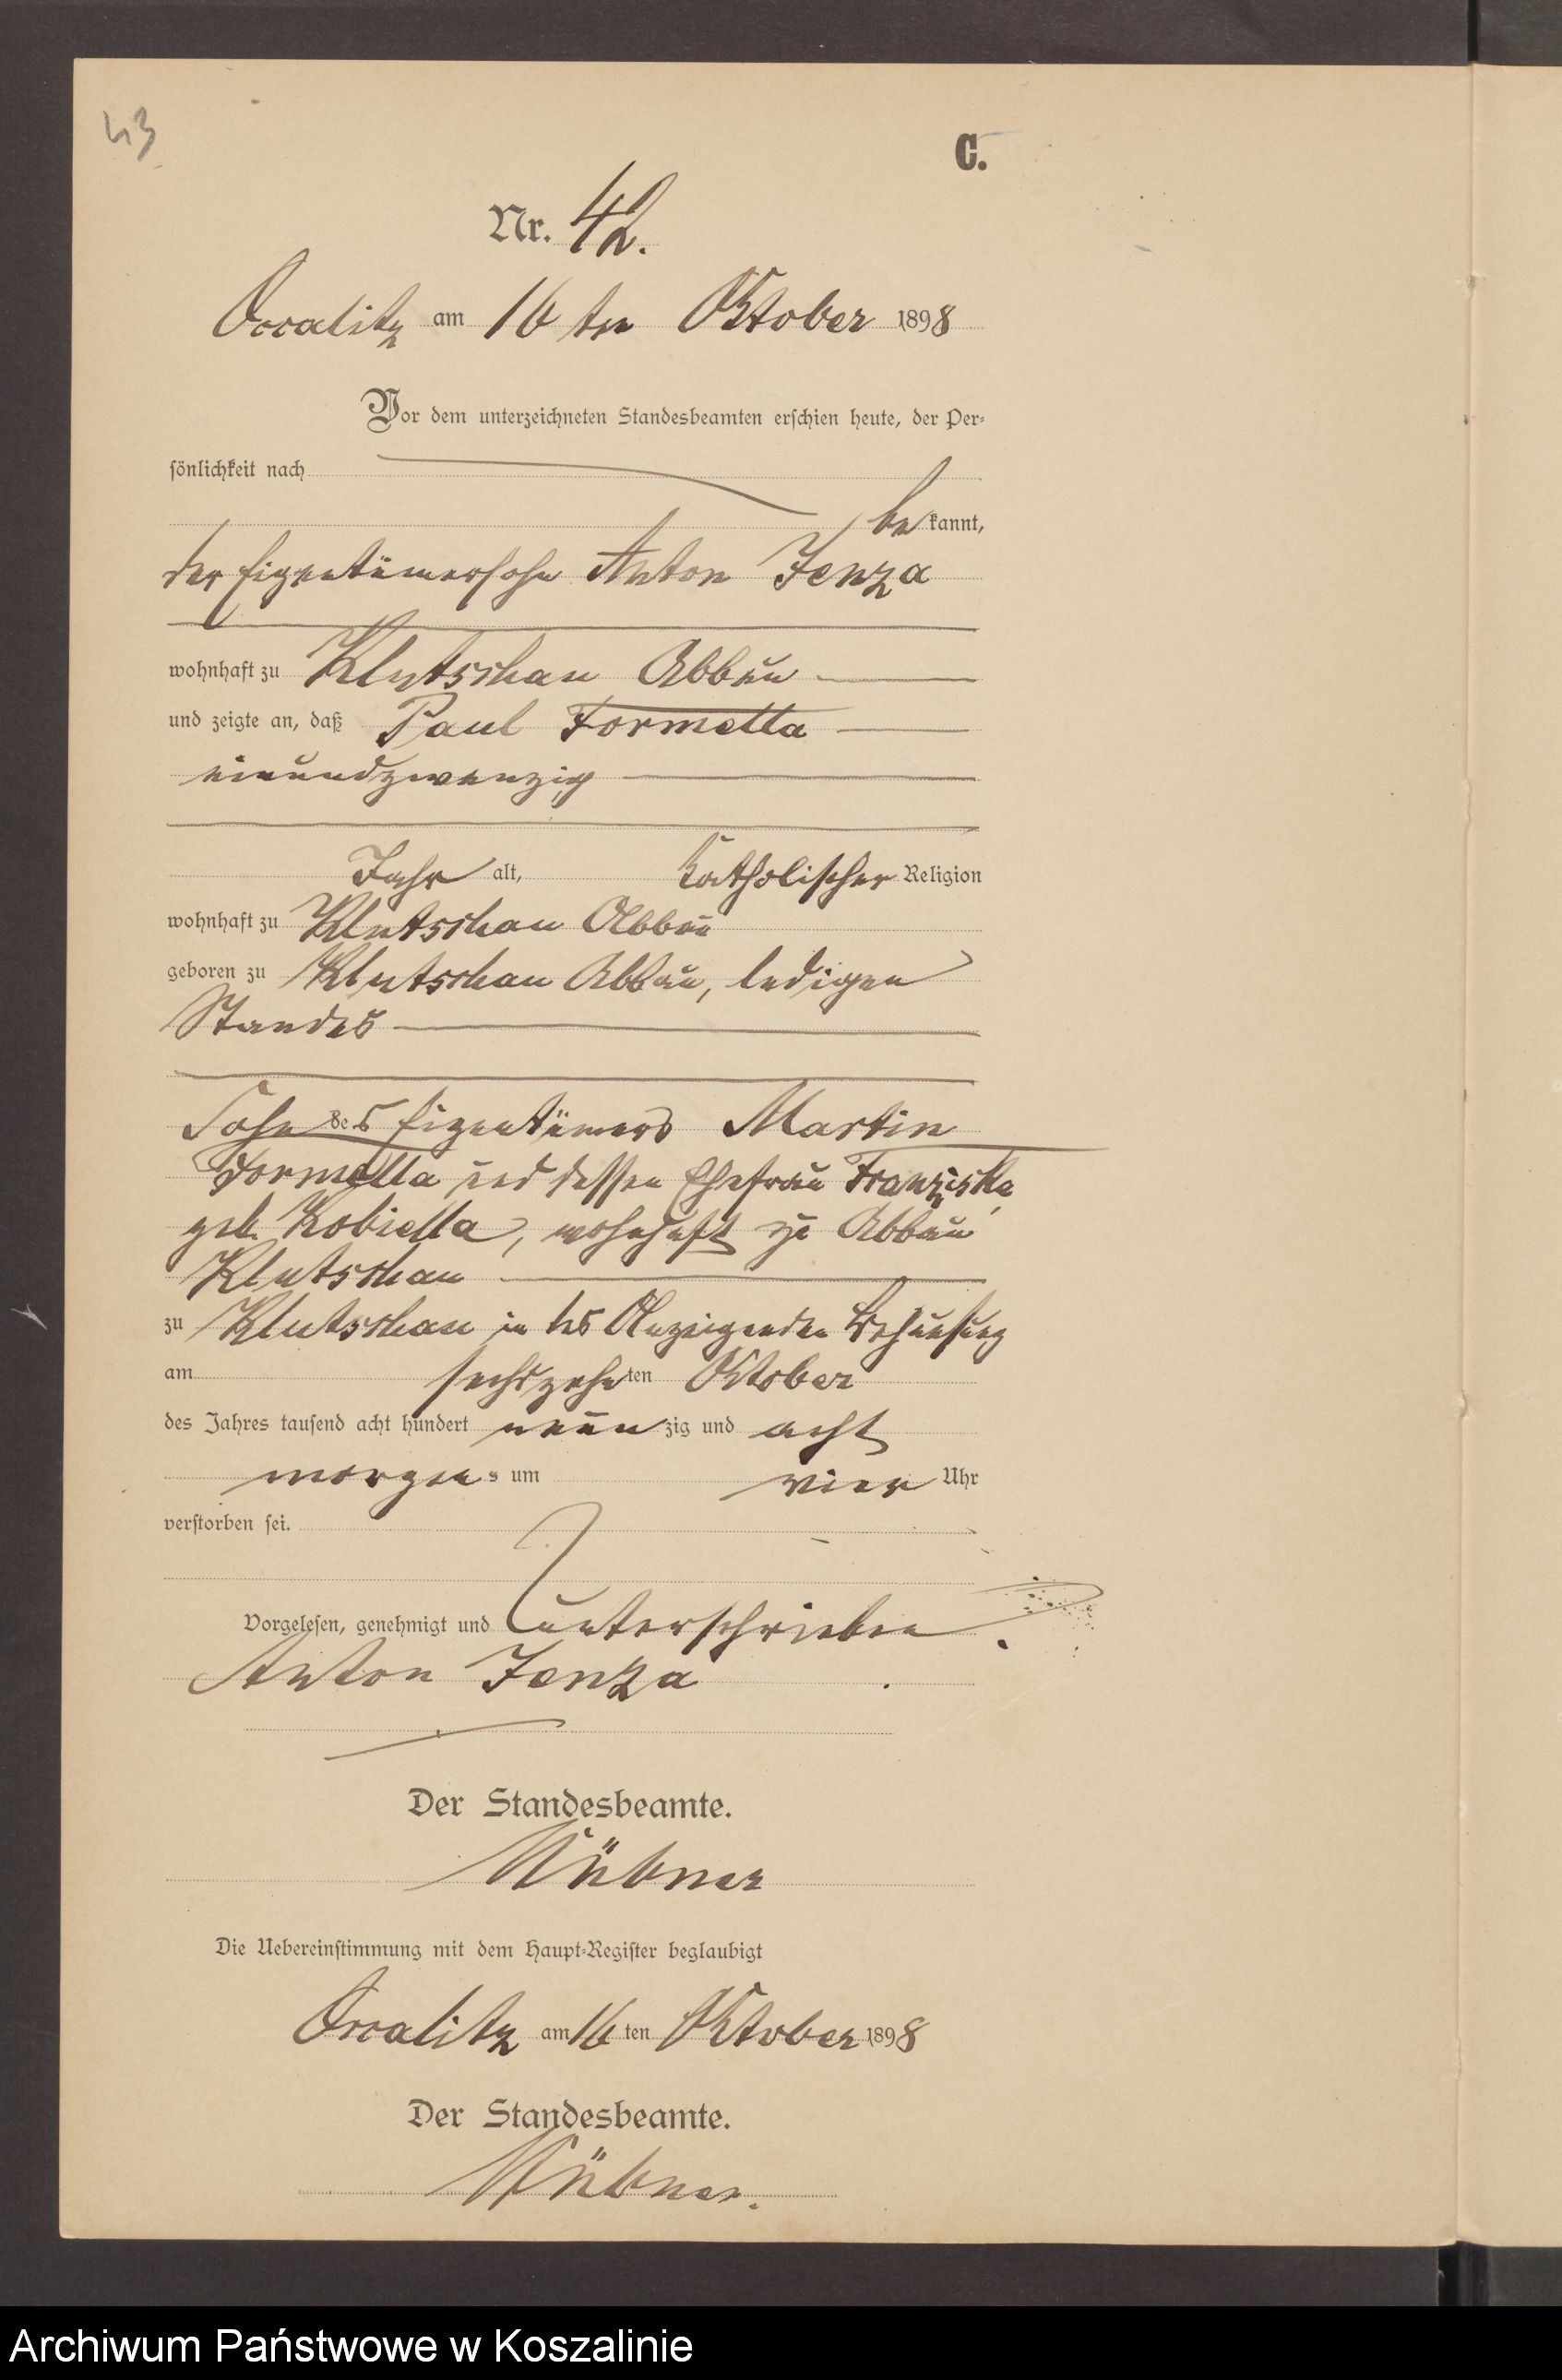 43
C.
Nr. 42.
Occalitz am 16 ten Oktober 1898
Vor dem unterzeichneten Standesbeamten erschien heute, der Per-
sönlichkeit nach
be kannt,
der Eigentümersohn Anton Jenza
wohnhaft zu Klutschau Abbau
und zeigte an, daß Paul Formella
einundzwanzig
Jahr alt, katholischer Religion
wohnhaft zu Klutschau Abbau
geboren zu Klutschau Abbau, ledigen
Standes
Sohn des Eigentümers Martin
Formella und dessen Ehefrau Franziska
geb. Kobiella, wohnhaft zu Abbau
Klutschau
zu Klutschau in des Anzeigenden Behausung
am sechszehn ten Oktober
des Jahres tausend acht hundert neun zig und acht
morgen s um vier Uhr
verstorben sei.
Vorgelesen, genehmigt und unterschrieben
Anton Jenza
Der Standesbeamte.
Die Uebereinstimmung mit dem Haupt-Register beglaubigt
Occalitz am 16 ten Oktober 1898
Der Standesbeamte.
Archiwum Państwowe w Koszalinie